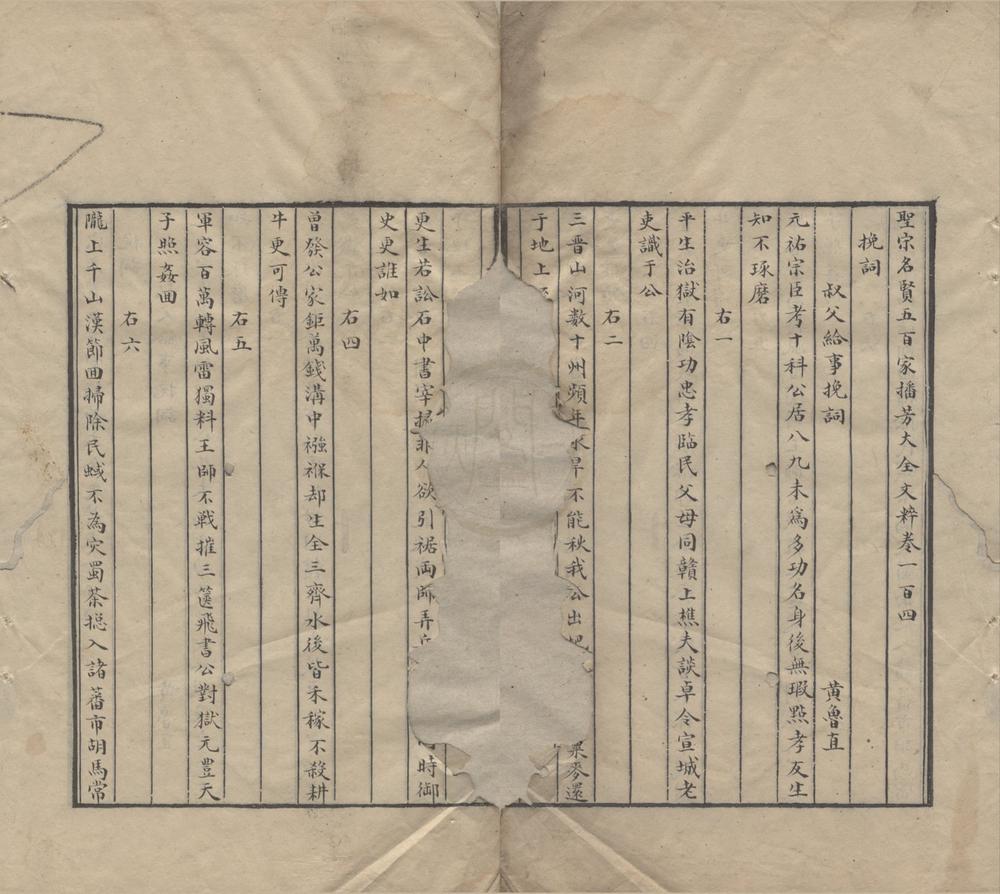 聖宗名賢五百家播芳大全文粹卷一百四
挽詞
叔父給事挽詞 黄魯直
元祐宗臣考十科公居八九未爲多功名身後無瑕㸃孝友生
知不琢磨
右一
平生治獄有陰功忠孝臨民父母同贛上樵夫談卓令宣城老
吏識于公
右二
三晋山河數十州頻年水旱不能秋我公出 粟麥還
于地上
更生若訟石中書宰掾非人欲引裾両師弄 時御
史更誰如
右四
曽發公家鉅萬錢溝中襁褓却生全三齊水後皆禾稼不殺耕
牛更可傳
右五
軍容百萬轉風雷獨料王師不戰摧三篋飛書公對獄元豊天
子照姦囬
右六
隴上千山漢節囬掃除民蜮不為灾蜀茶揔入諸蕃市胡馬常